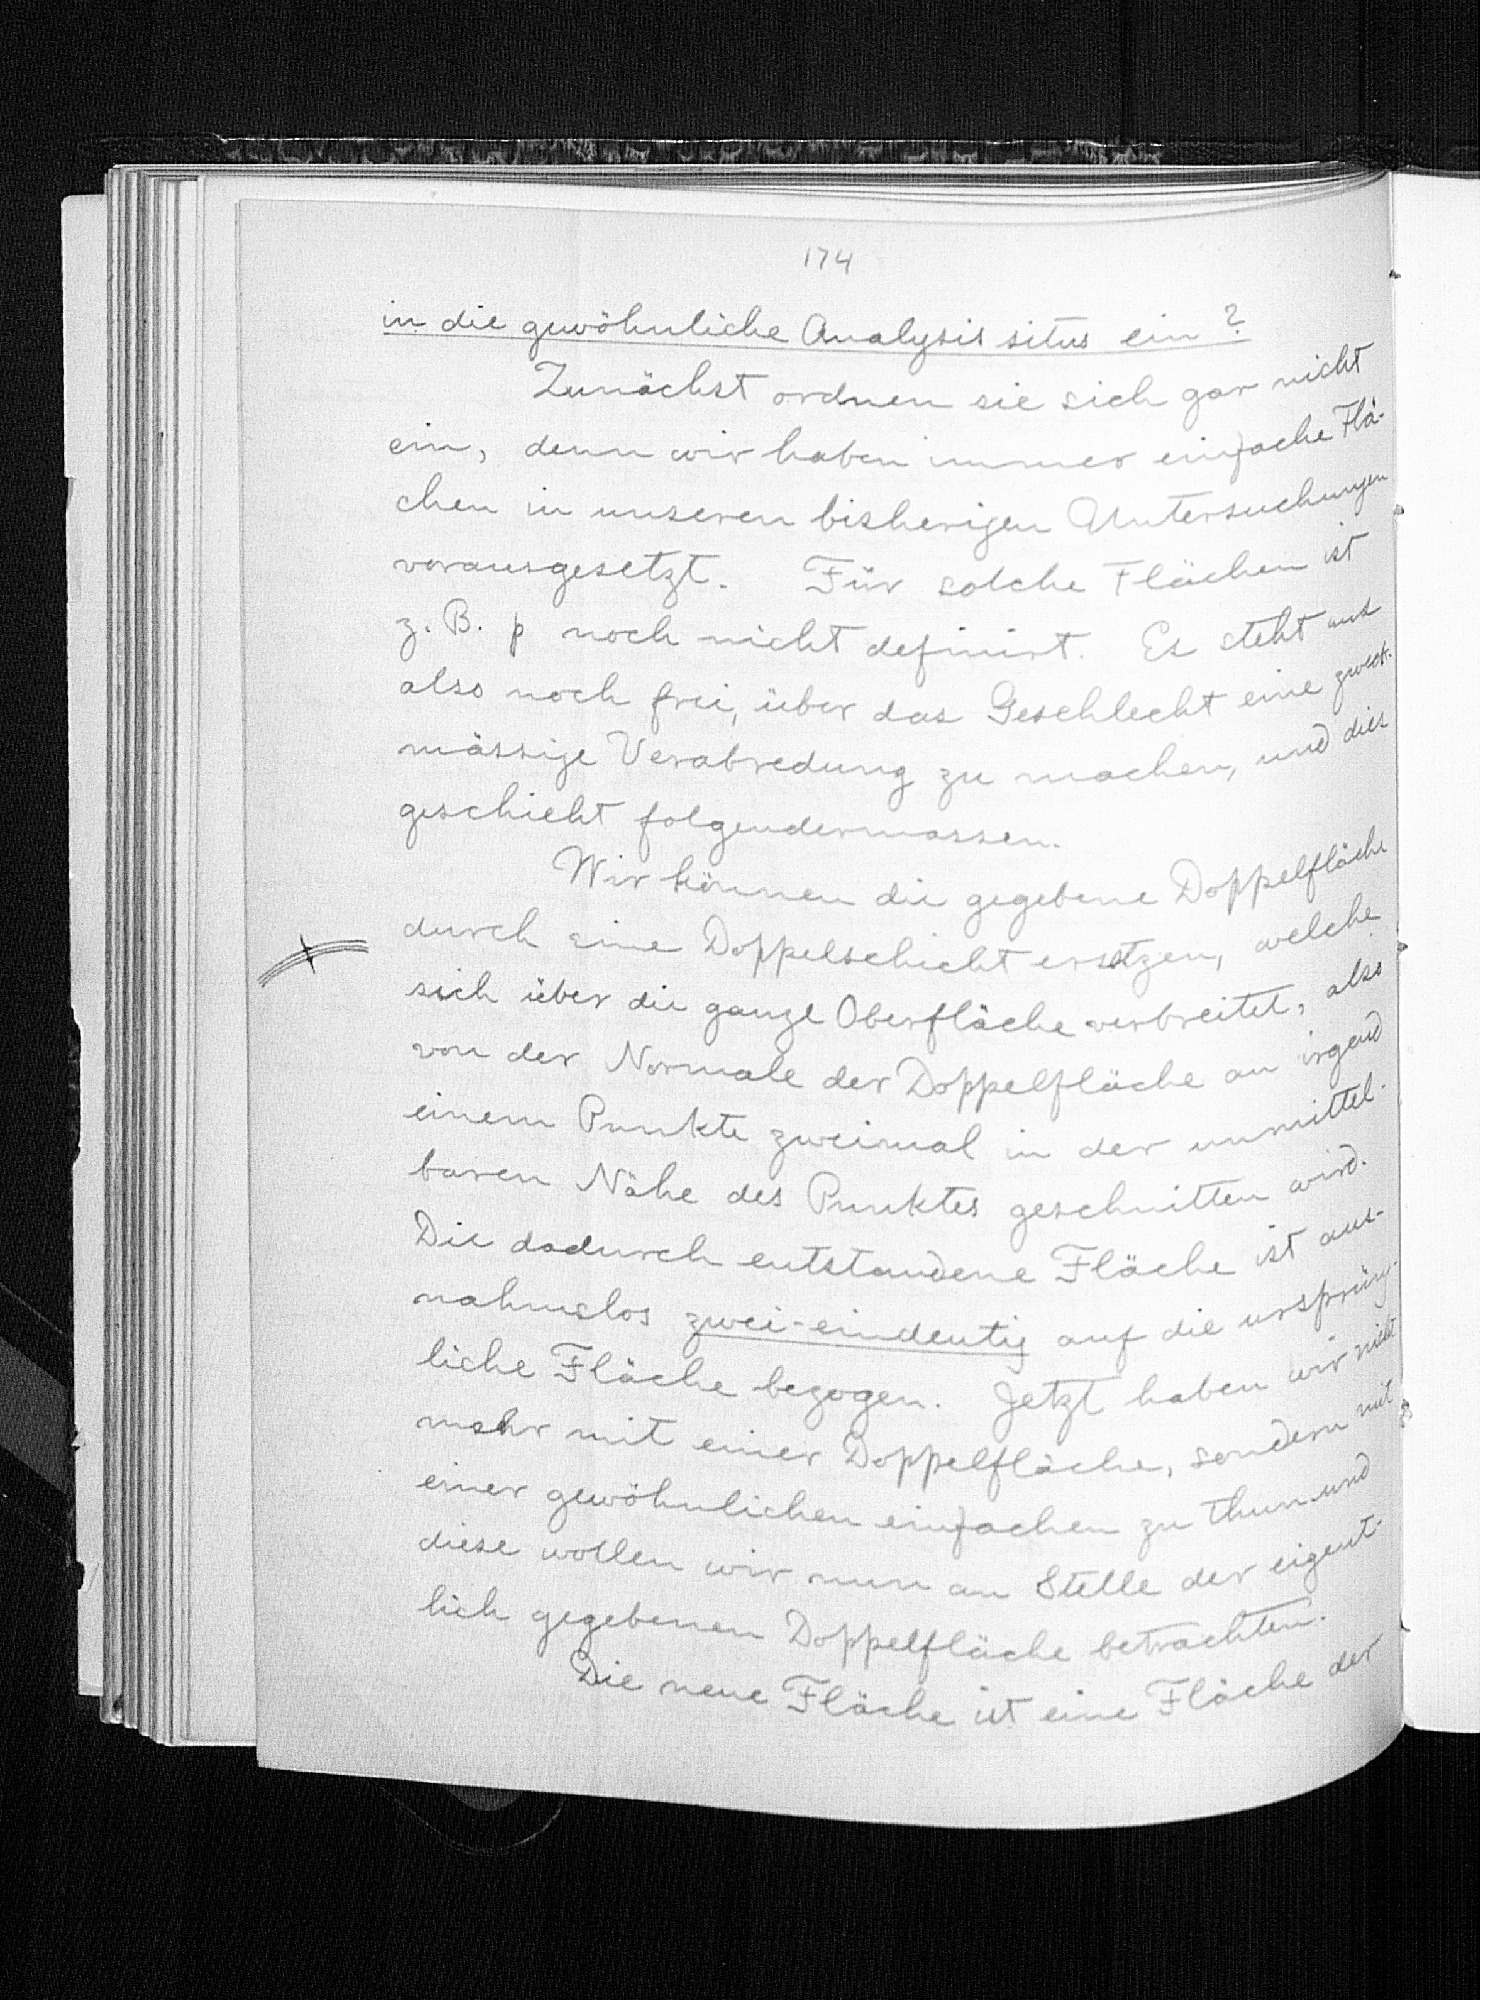 174
in die gewöhnliche Analysis situs ein?
Zunächst ordnen sie sich gar nicht
ein, denn wir haben immer einfache Flä-
chen in unseren bisherigen Untersuchungen
vorausgesetzt. Für solche Flächen ist
z. B. p noch nicht definirt. Es steht uns
also noch frei, über das Geschlecht eine zweck-
mässige Verabredung zu machen, und dies
geschieht folgendermassen.
Wir können die gegebene Doppelfläche
durch eine Doppelschicht ersetzen, welche
sich über die ganze Oberfläche verbreitet, also
von der Normale der Doppelfläche an irgend
einem Punkte zweimal in der unmittel-
baren Nähe des Punktes geschnitten wird.
Die dadurch entstandene Fläche ist aus-
nahmslos zwei-eindeutig auf die ursprüng-
liche Fläche bezogen. Jetzt haben wir nicht
mehr mit einer Doppelfläche, sondern mit
einer gewöhnlichen einfachen zu thun und
diese wollen wir nun an Stelle der eigent-
lich gegebenen Doppelfläche betrachten.
Die neue Fläche ist eine Fläche der